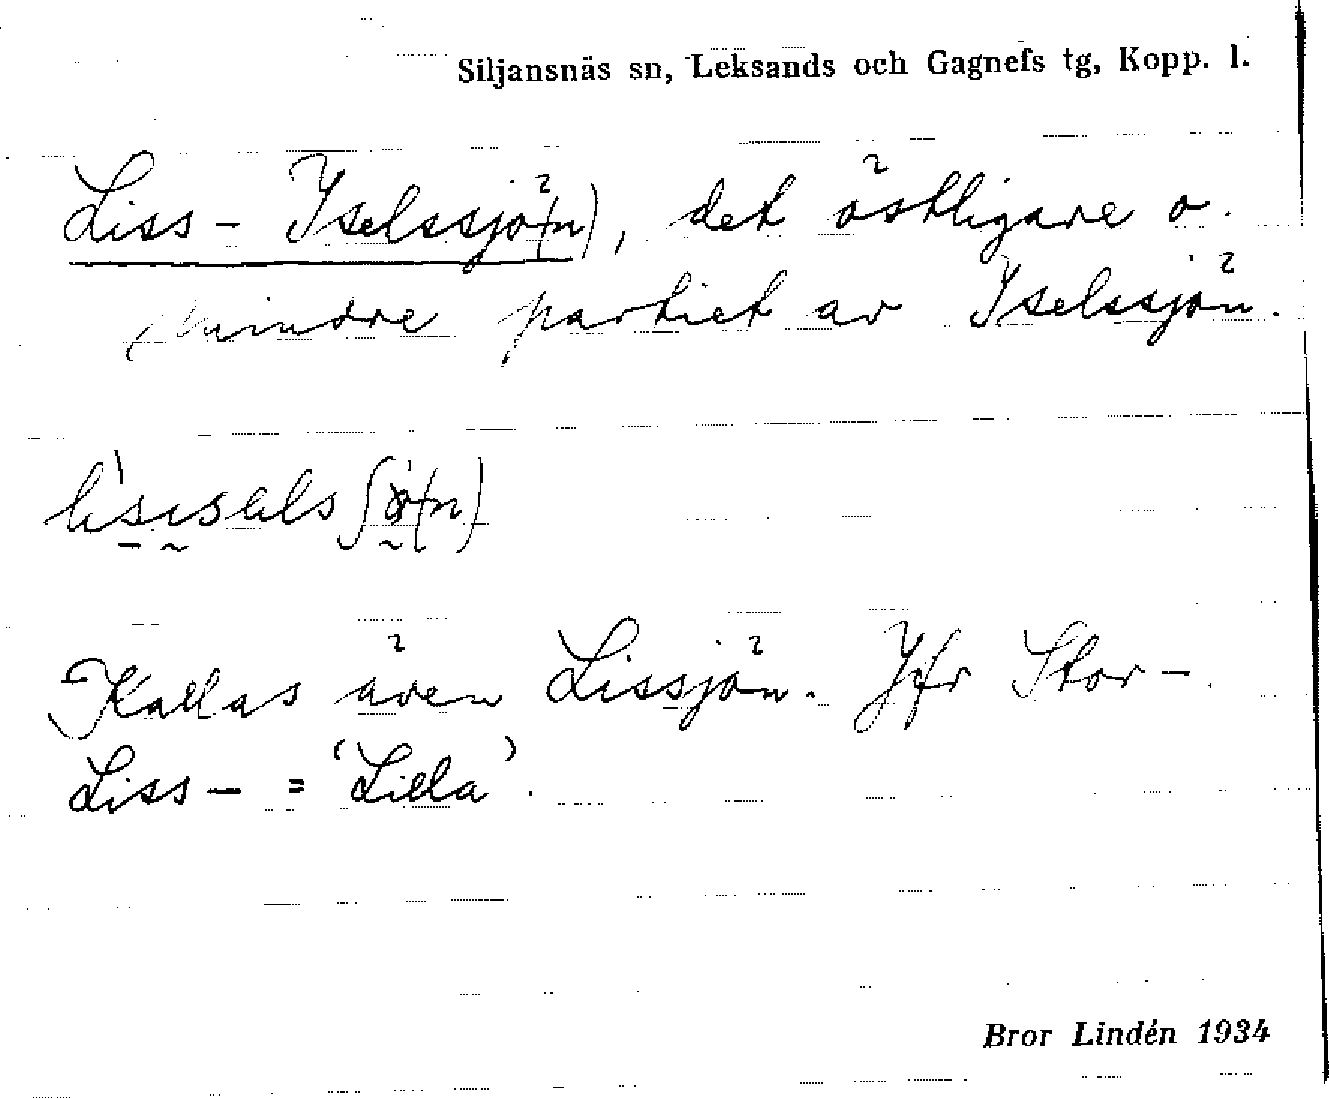 Siljansnäs sn, Leksands och Gagnefs tg, Kopp. l.
Liss-Yselssjö(n), det östligare o.
mindre partiet av Yselssjön.
Kallas även Lissjön. Jfr Stor-.
Liss- = 'Lilla'.
Bror Lindén 1934